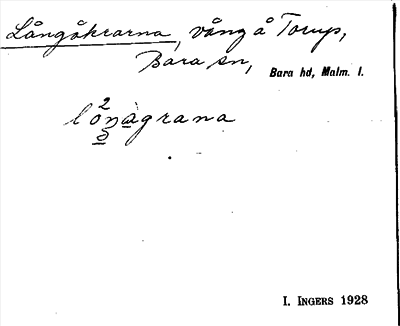 Långåkrarna, vång å Torup,
Bara sn, Bara hd, Malm. l.
lo²nagrana
I. INGERS 1928